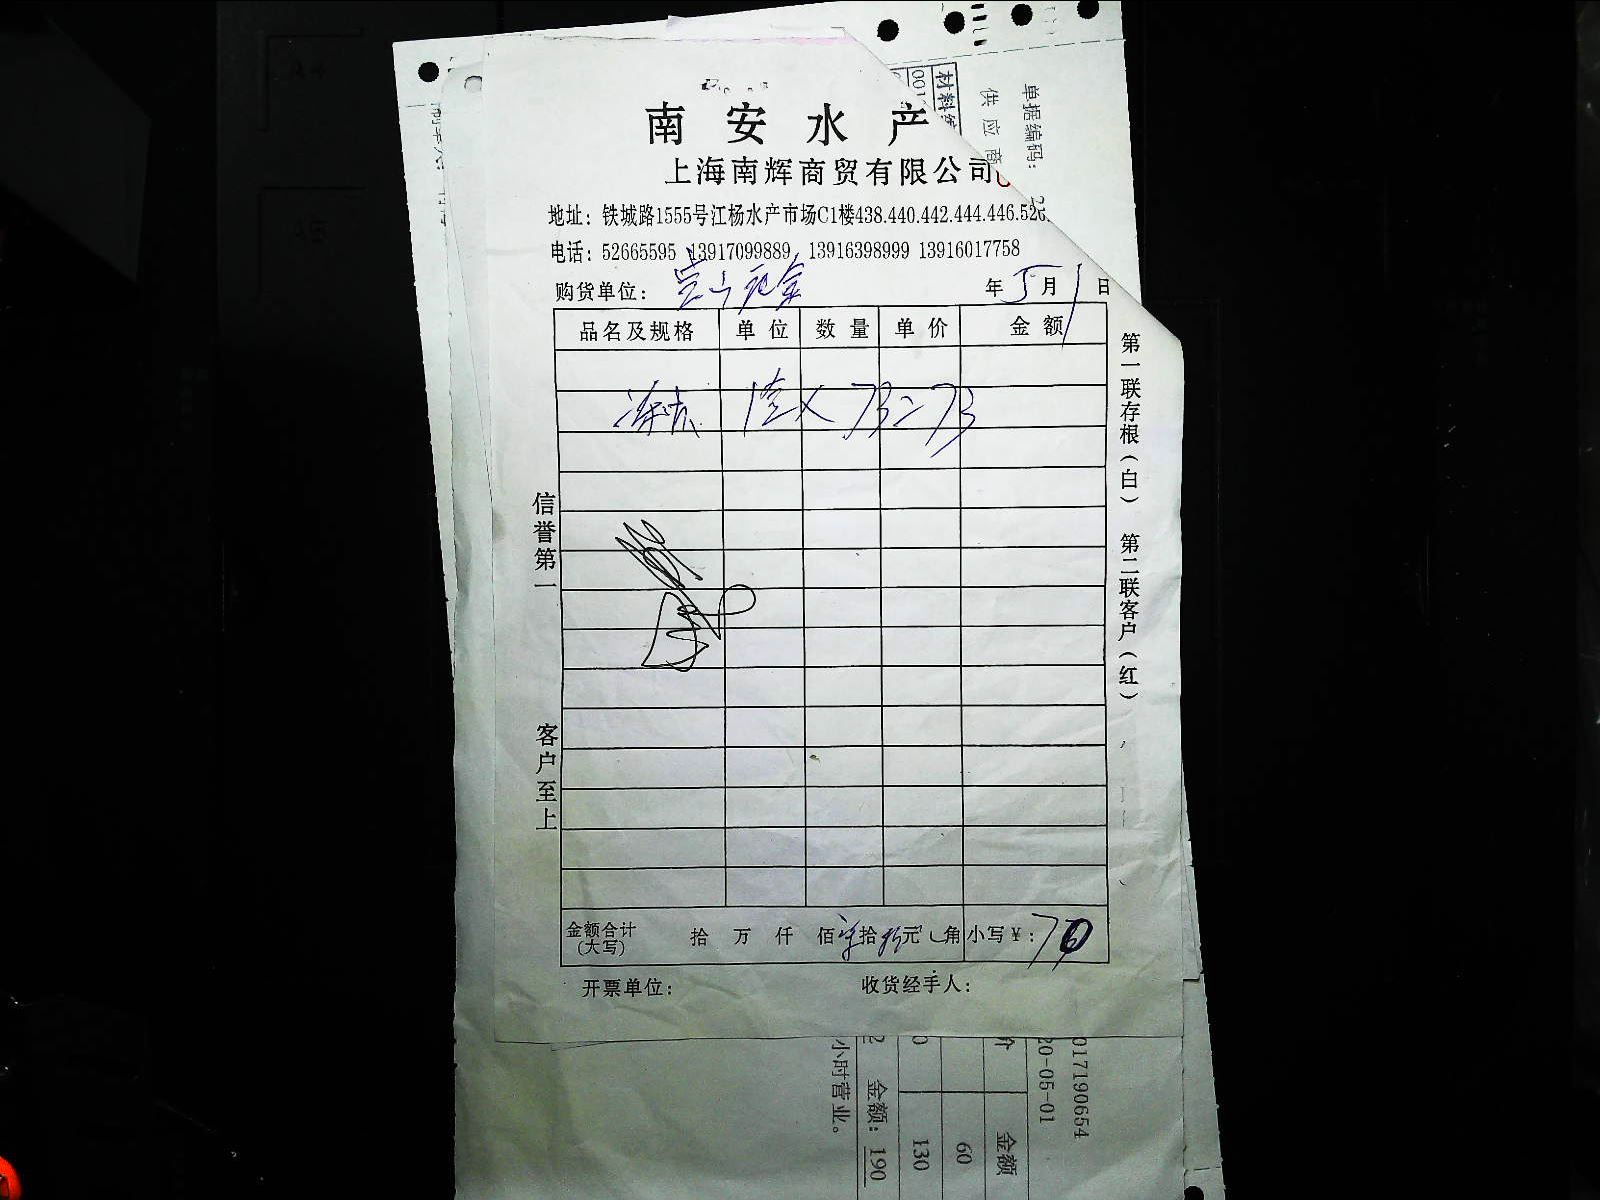 南安水产
上海南辉商贸有限公司
地址：铁城路1555号江杨水产市场C1楼438.440.442.444.446.526.
电话：52665595 13917099889 13916398999 13916017758
购货单位：
年5月1日
品名及规格 单位 数量 单价 金额
73=73
信誉第一
客户至上
第一联存根（白） 第二联客户（红）
金额合计（大写） 拾 万 仟 佰 拾 元 角 小写￥：70
开票单位： 收货经手人：
单据编码：
供应商
材料
001
017190654
20-05-01
价 金额
60
130
金额：190
小时营业。